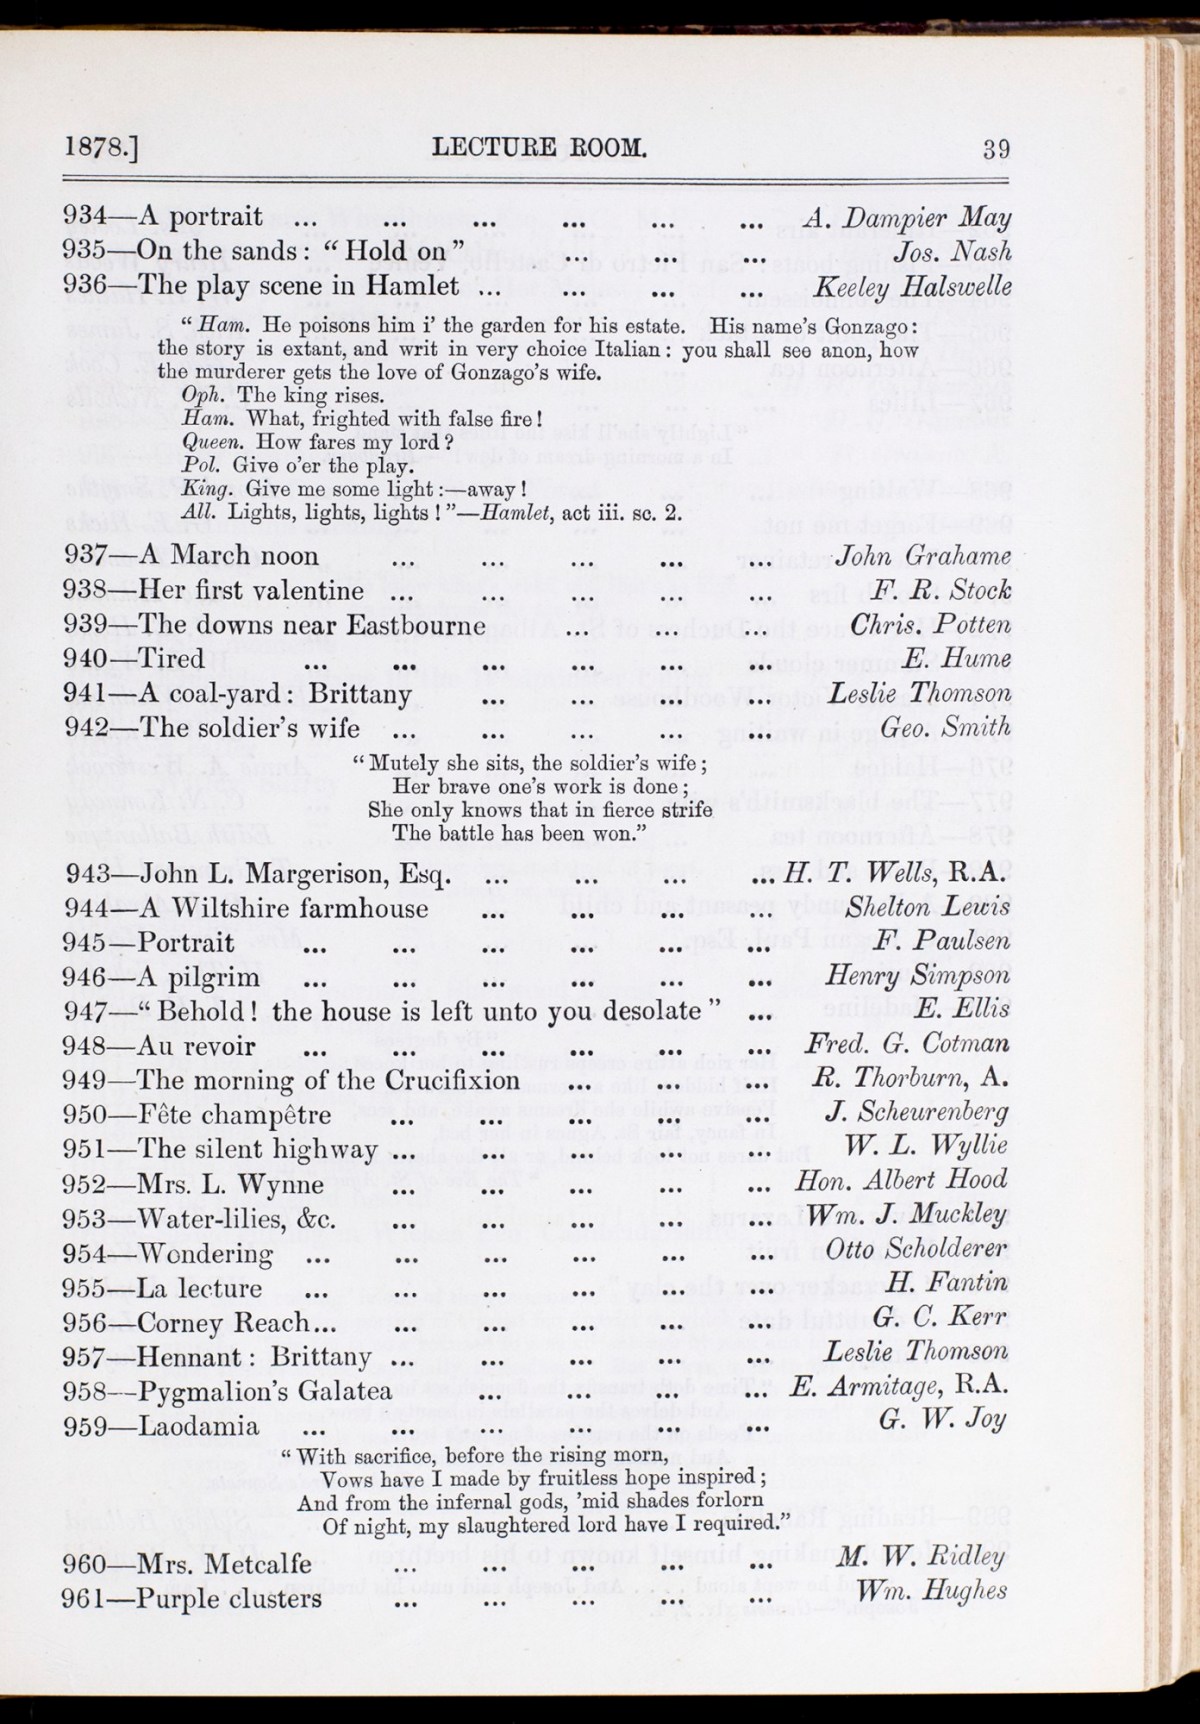 1878.] LECTURE ROOM. 39
934—A portrait ... ... ... ... ... ... A. Dampier May
935—On the sands: “Hold on” ... ... ... Jos. Nash
936—The play scene in Hamlet ... ... ... ... Keeley Halswelle
“Ham. He poisons him i’ the garden for his estate. His name’s Gonzago:
the story is extant, and writ in very choice Italian: you shall see anon, how
the murderer gets the love of Gonzago’s wife.
Oph. The king rises.
Ham. What, frighted with false fire!
Queen. How fares my lord?
Pol. Give o’er the play.
King. Give me some light:—away!
All. Lights, lights, lights!”—Hamlet, act iii. sc. 2.
937—A March noon ... ... ... ... ... John Grahame
938—Her first valentine ... ... ... ... ... F. R. Stock
939—The downs near Eastbourne ... ... ... Chris. Potten
940—Tired ... ... ... ... ... ... E. Hume
941—A coal-yard: Brittany ... ... ... ... Leslie Thomson
942—The soldier’s wife ... ... ... ... ... Geo. Smith
“Mutely she sits, the soldier’s wife;
Her brave one’s work is done;
She only knows that in fierce strife
The battle has been won.”
943—John L. Margerison, Esq. ... ... ... ... H. T. Wells, R.A.
944—A Wiltshire farmhouse ... ... ... ... Shelton Lewis
945—Portrait ... ... ... ... ... ... F. Paulsen
946—A pilgrim ... ... ... ... ... ... Henry Simpson
947—“Behold! the house is left unto you desolate” ... E. Ellis
948—Au revoir ... ... ... ... ... ... Fred. G. Cotman
949—The morning of the Crucifixion ... ... ... R. Thorburn, A.
950—Fête champêtre ... ... ... ... ... J. Scheurenberg
951—The silent highway ... ... ... ... ... W. L. Wyllie
952—Mrs. L. Wynne ... ... ... ... ... Hon. Albert Hood
953—Water-lilies, &c. ... ... ... ... ... Wm. J. Muckley
954—Wondering ... ... ... ... ... ... Otto Scholderer
955—La lecture ... ... ... ... ... ... H. Fantin
956—Corney Reach... ... ... ... ... ... G. C. Kerr
957—Hennant: Brittany ... ... ... ... ... Leslie Thomson
958—Pygmalion’s Galatea ... ... ... ... E. Armitage, R.A.
959—Laodamia ... ... ... ... ... ... G. W. Joy
“With sacrifice, before the rising morn,
Vows have I made by fruitless hope inspired;
And from the infernal gods, ’mid shades forlorn
Of night, my slaughtered lord have I required.”
960—Mrs. Metcalfe ... ... ... ... ... M. W. Ridley
961—Purple clusters ... ... ... ... ... Wm. Hughes